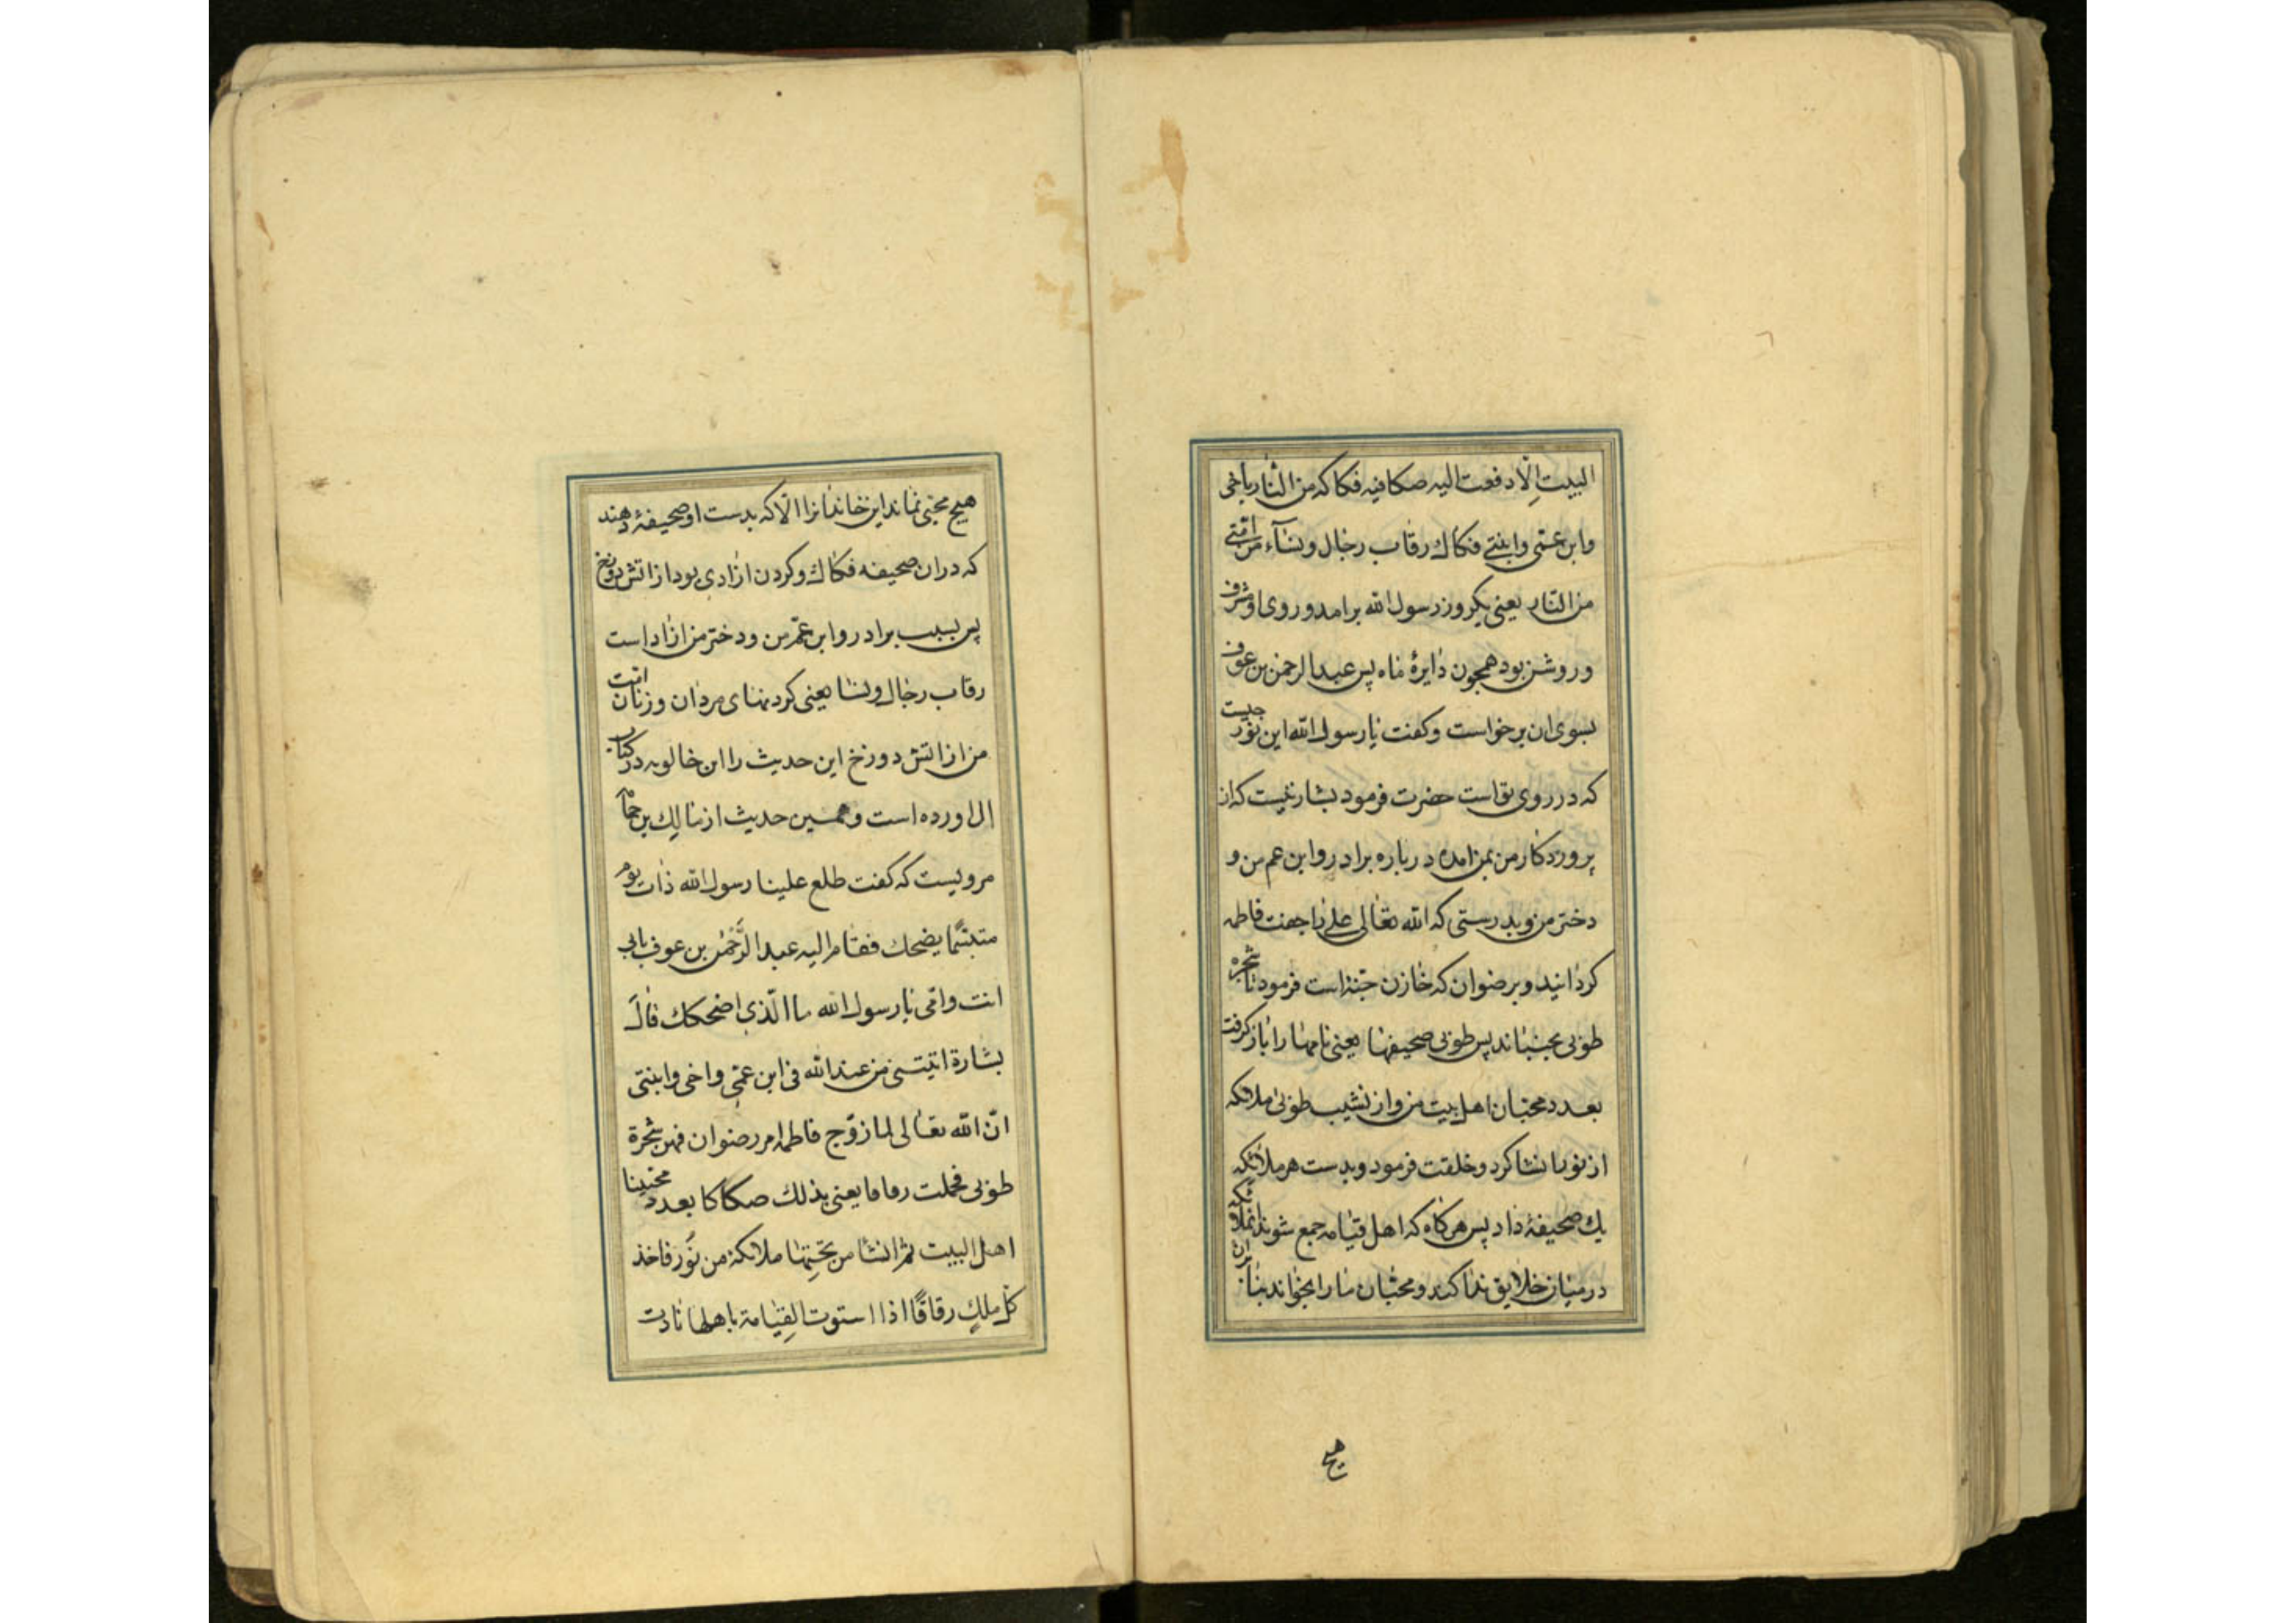 البیت الّا دفعت الیه صکا فیه فکاکه من النّار باخی
وابن عمّی وابنتی فکاك رقاب رجال ونسآء من امّتی
من النّار یعنی یکروز رسول الله برامد و روی او مشرف
و روشن بود همچون دایرهٔ ماه پس عبد الرحمن بن عوف
بسوی ان برخواست و کفت یا رسول الله این نور چیست
که در روی تو است حضرت فرمود بشارتیست که از
پروردکار من بمن امده در باره برادر و ابن عم من و
دختر من و بدرستی که الله تعالی علی را جفت فاطمه
کردانید و برضوان که خازن جنة است فرمود تا شجره
طوبی بجنباند پس طوبی صحیفها یعنی نامها را باز کرفت
بعدد محبّان اهل بیت من و از نشیب طوبی ملائکه
از نور انشا کرد و خلقت فرمود و بدست هر ملائکه
یك صحیفهٔ داد پس هر کاه که اهل قیامه جمع شوند انملائکه
در میان خلایق ندا کند و محبّان ما را بخواند بنابران
هیچ
هیچ محبّی نماند این خاندانرا الّا که بدست او صحیفهٔ دهند
که در ان صحیفه فکاك و کردن ازادی بود از اتش دوزخ
پس بسبب برادر و ابن عمّ من و دختر من ازاد است
رقاب رجال و نسا یعنی کردنهای مردان و زنان امّت
من از اتش دوزخ این حدیث را ابن خالویه در کتاب
ال اورده است و همین حدیث از مالك بن حمامه
مرویست که کفت طلع علینا رسول الله ذات یوم
متبسّما یضحك فقام الیه عبد الرّحمٰن بن عوف بابی
انت وامّی یا رسول الله ما الّذی اضحکك قال
بشارة اتیتنی من عند الله فی ابن عمّی واخی وابنتی
انّ الله تعالی لما زوّج فاطمه امر رضوان فهز شجرة
طوبی فحملت رقاقا یعنی بذلك صکاکا بعدد محبّینا
اهل البیت ثم انشا من تحتِها ملائکة من نُور فاخذ
کلّ ملكٍ رقاقًا اذا استوت القِیامة باهلها نادت